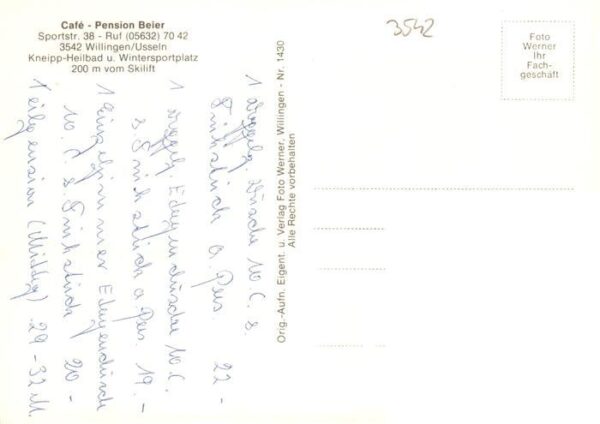 Café - Pension Beier
Sportstr. 38 - Ruf (05632) 70 42
3542 Willingen/Usseln
Kneipp-Heilbad u. Wintersportplatz
200 m vom Skilift
3542
Foto
Werner
Ihr
Fach-
geschäft
Orig.-Aufn. Eigent. u. Verlag Foto Werner, Willingen - Nr. 1430
Alle Rechte vorbehalten
1 Dusche W.C. &
Frühstück a. Pers. 22 -
1 W.C.
& Frühstück a. Pers. 19.-
1 Einzelzimmer
W.C. & Frühstück 20 -
Teilpension (Mittag) 29-32 M.